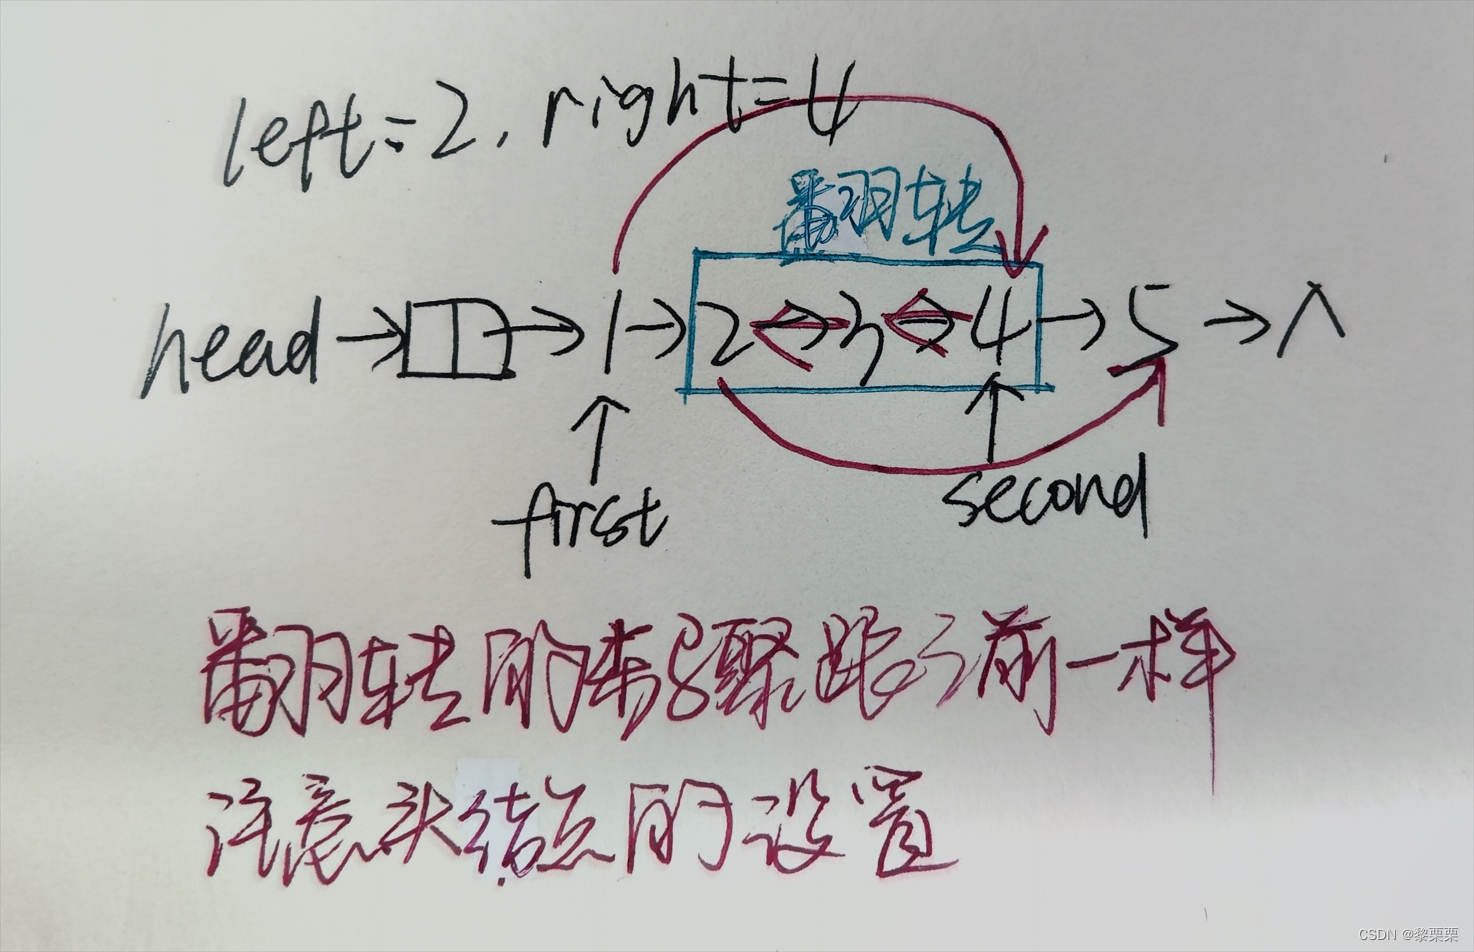 left=2, right=4
翻转
head → → 1 → 2 ↔ 3 ↔ 4 → 5 → ∧
first
second
翻转的步骤跟之前一样
注意头结点的设置
CSDN @黎栗栗